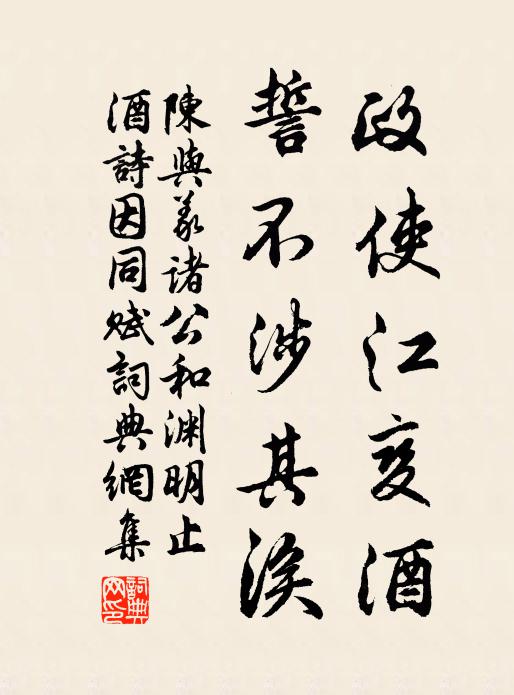 政使江变酒
誓不涉其涘
陳與義諸公和渊明止
酒詩因同賦詞典網集
詞典網印